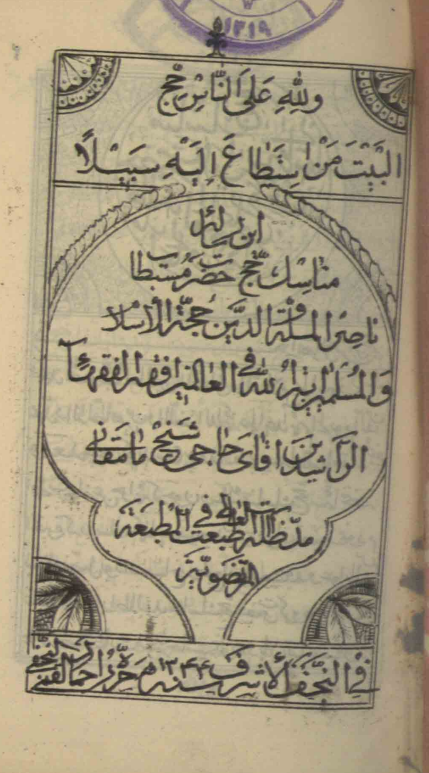 ۱۳۱۹
ولله علی الناس حج
البیت من استطاع إلیه سبیلاً
این رساله
مناسک حج حضرت مستطاب
ناصر الملة والدین حجة الاسلام
والمسلمین ایة الله فی العالمین افقه الفقهاء
الراشدین اقای حاجی شیخ مامقانی
مد ظله العالی طبعت فی المطبعة
المرتضویة
فی النجف الاشرف سنه ۱۳۴۴